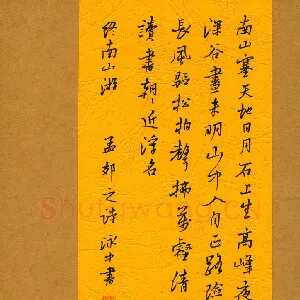 南山塞天地日月石上生高峰夜
深谷晝未明山中人自正路險
長風驅松柏聲拂萬壑清
讀書朝朝近浮名
終南山游 孟郊之詩 書